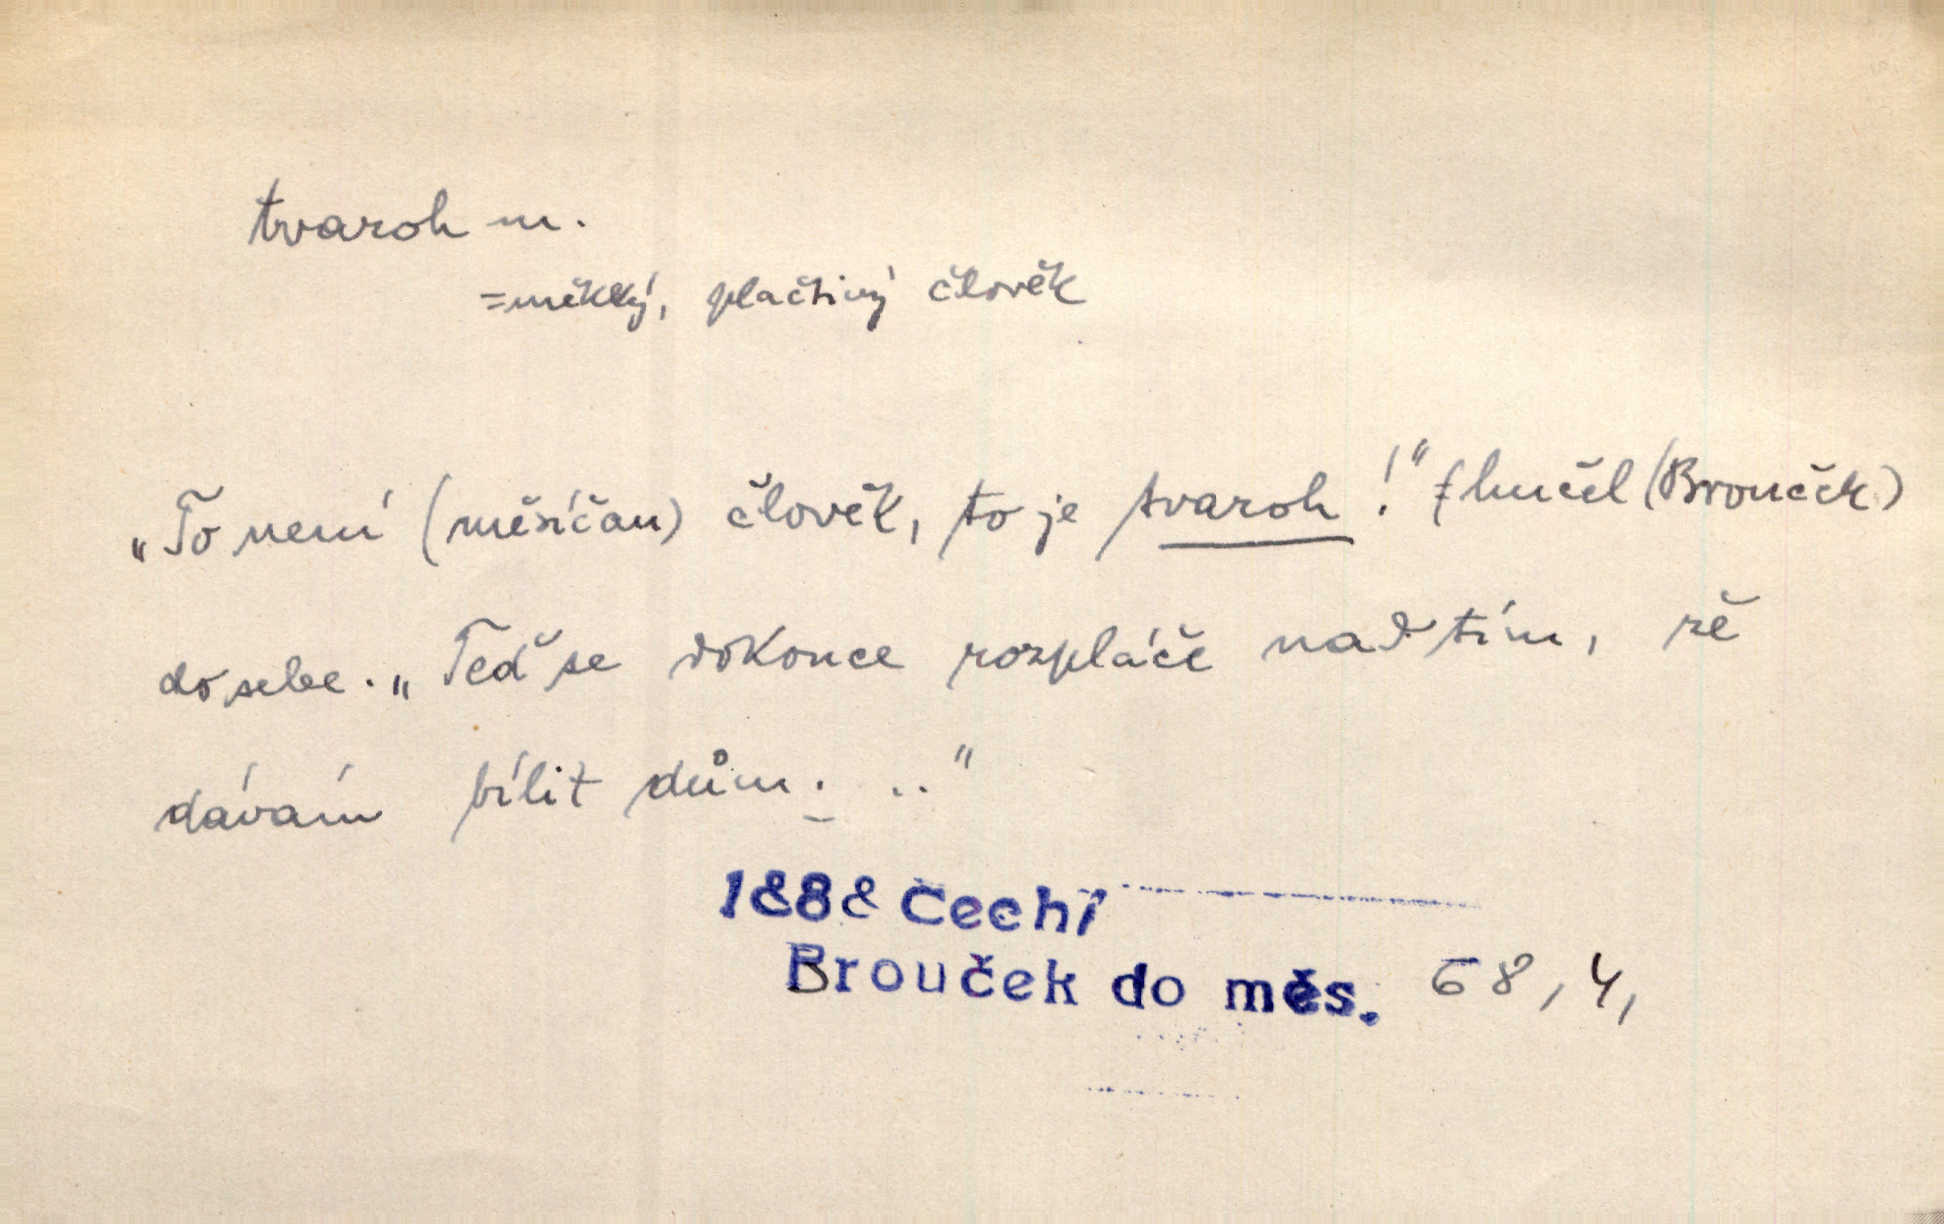 tvaroh m.
=měkký, plačtivý člověk
„To není (měsíčan) člověk, to je tvaroh!“ hučel (Brouček)
do sebe. „Teď se dokonce rozpláče nad tím, že
dávám bílit dům. ..“
1888 Čech
Brouček do měs. 68, 4,